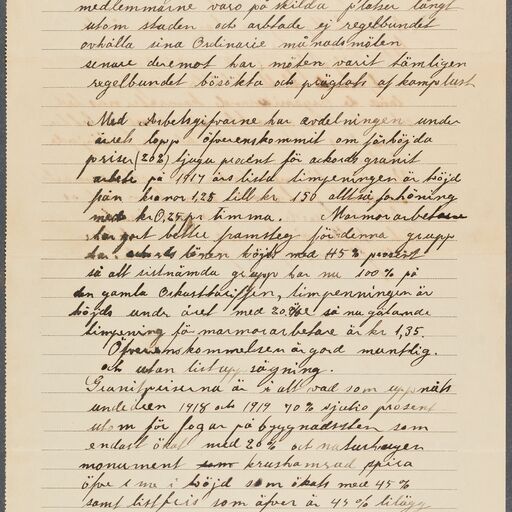 medlemmarne varo på skilda platser långt
utom staden och arbtade ej regelbundet
ovhålla sina Ordinarie månadsmöten
senare deremot har möten varit tämligen
regelbundet bösökta och präglats af kamplust
Med Arbetsgifvarne har avdelningen under
årets lopp öfverenskommit om förhöjda
priser (20%) tjugo procent för ackords granit
arbete på 1917 års lista timpeningen är höjd
från kronor 1,25 till kr 1.50 alltså förhöning
med kr 0,25 pr timma. Marmorarbetare
har gort bettre framsteg för denna grupp
har ackords lönen höjts med 45% procent
så att sistnämda grupp har nu 100% på
den gamla Orkusttariffen, timpenningen är
höjds under året med 20% så nu gälande
timpening för marmorarbetare är kr 1,35.
Öfverenskommelsen är gord muntlig.
och utan list upp sägning.
Granitpriserna är i alt vad som uppnåts
under åren 1918 och 1919 70% sjutio prosent
utom för fogar på byggnadssten som
endast ökat med 20% och naturhugen
monument krushamrad spira
öfve 1 me i höjd som ökats med 45%
samt listpris som äfver är 45% tilägg